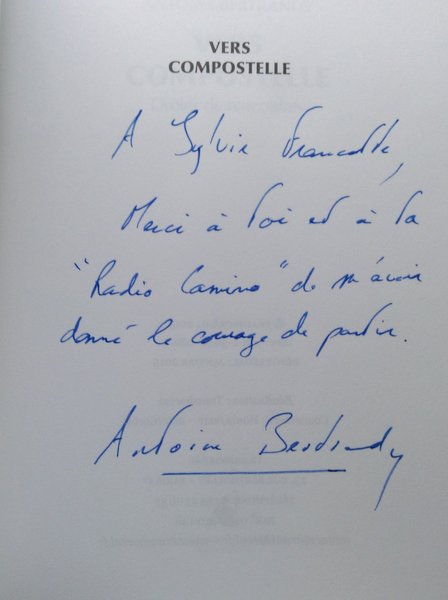 VERS
COMPOSTELLE
A Sylvie Francotte,
Merci à toi et à la
"Radio Camino" de m'avoir
donné le courage de partir.
Antoine